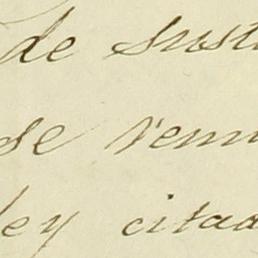 de sust
se remi
ley citad